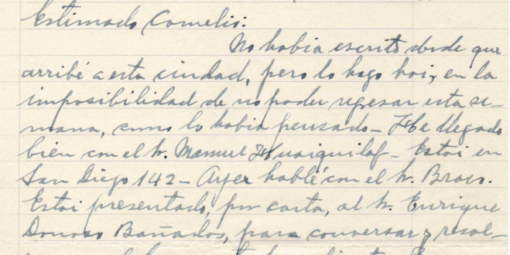 Estimado Cornelio:
No habia escrito desde que
arribé a esta ciudad, pero lo hago hoi, en la
imposibilidad de no poder regresar esta se-
mana, como lo habia pensado - He llegado
bien con el h. Manuel Huaiquilaf - Estoi en
San Diego 142 - Ayer hablé con el h.
Estoi presentado, por carta, al h. Enrique
Donoso Bañados, para conversar y resol-